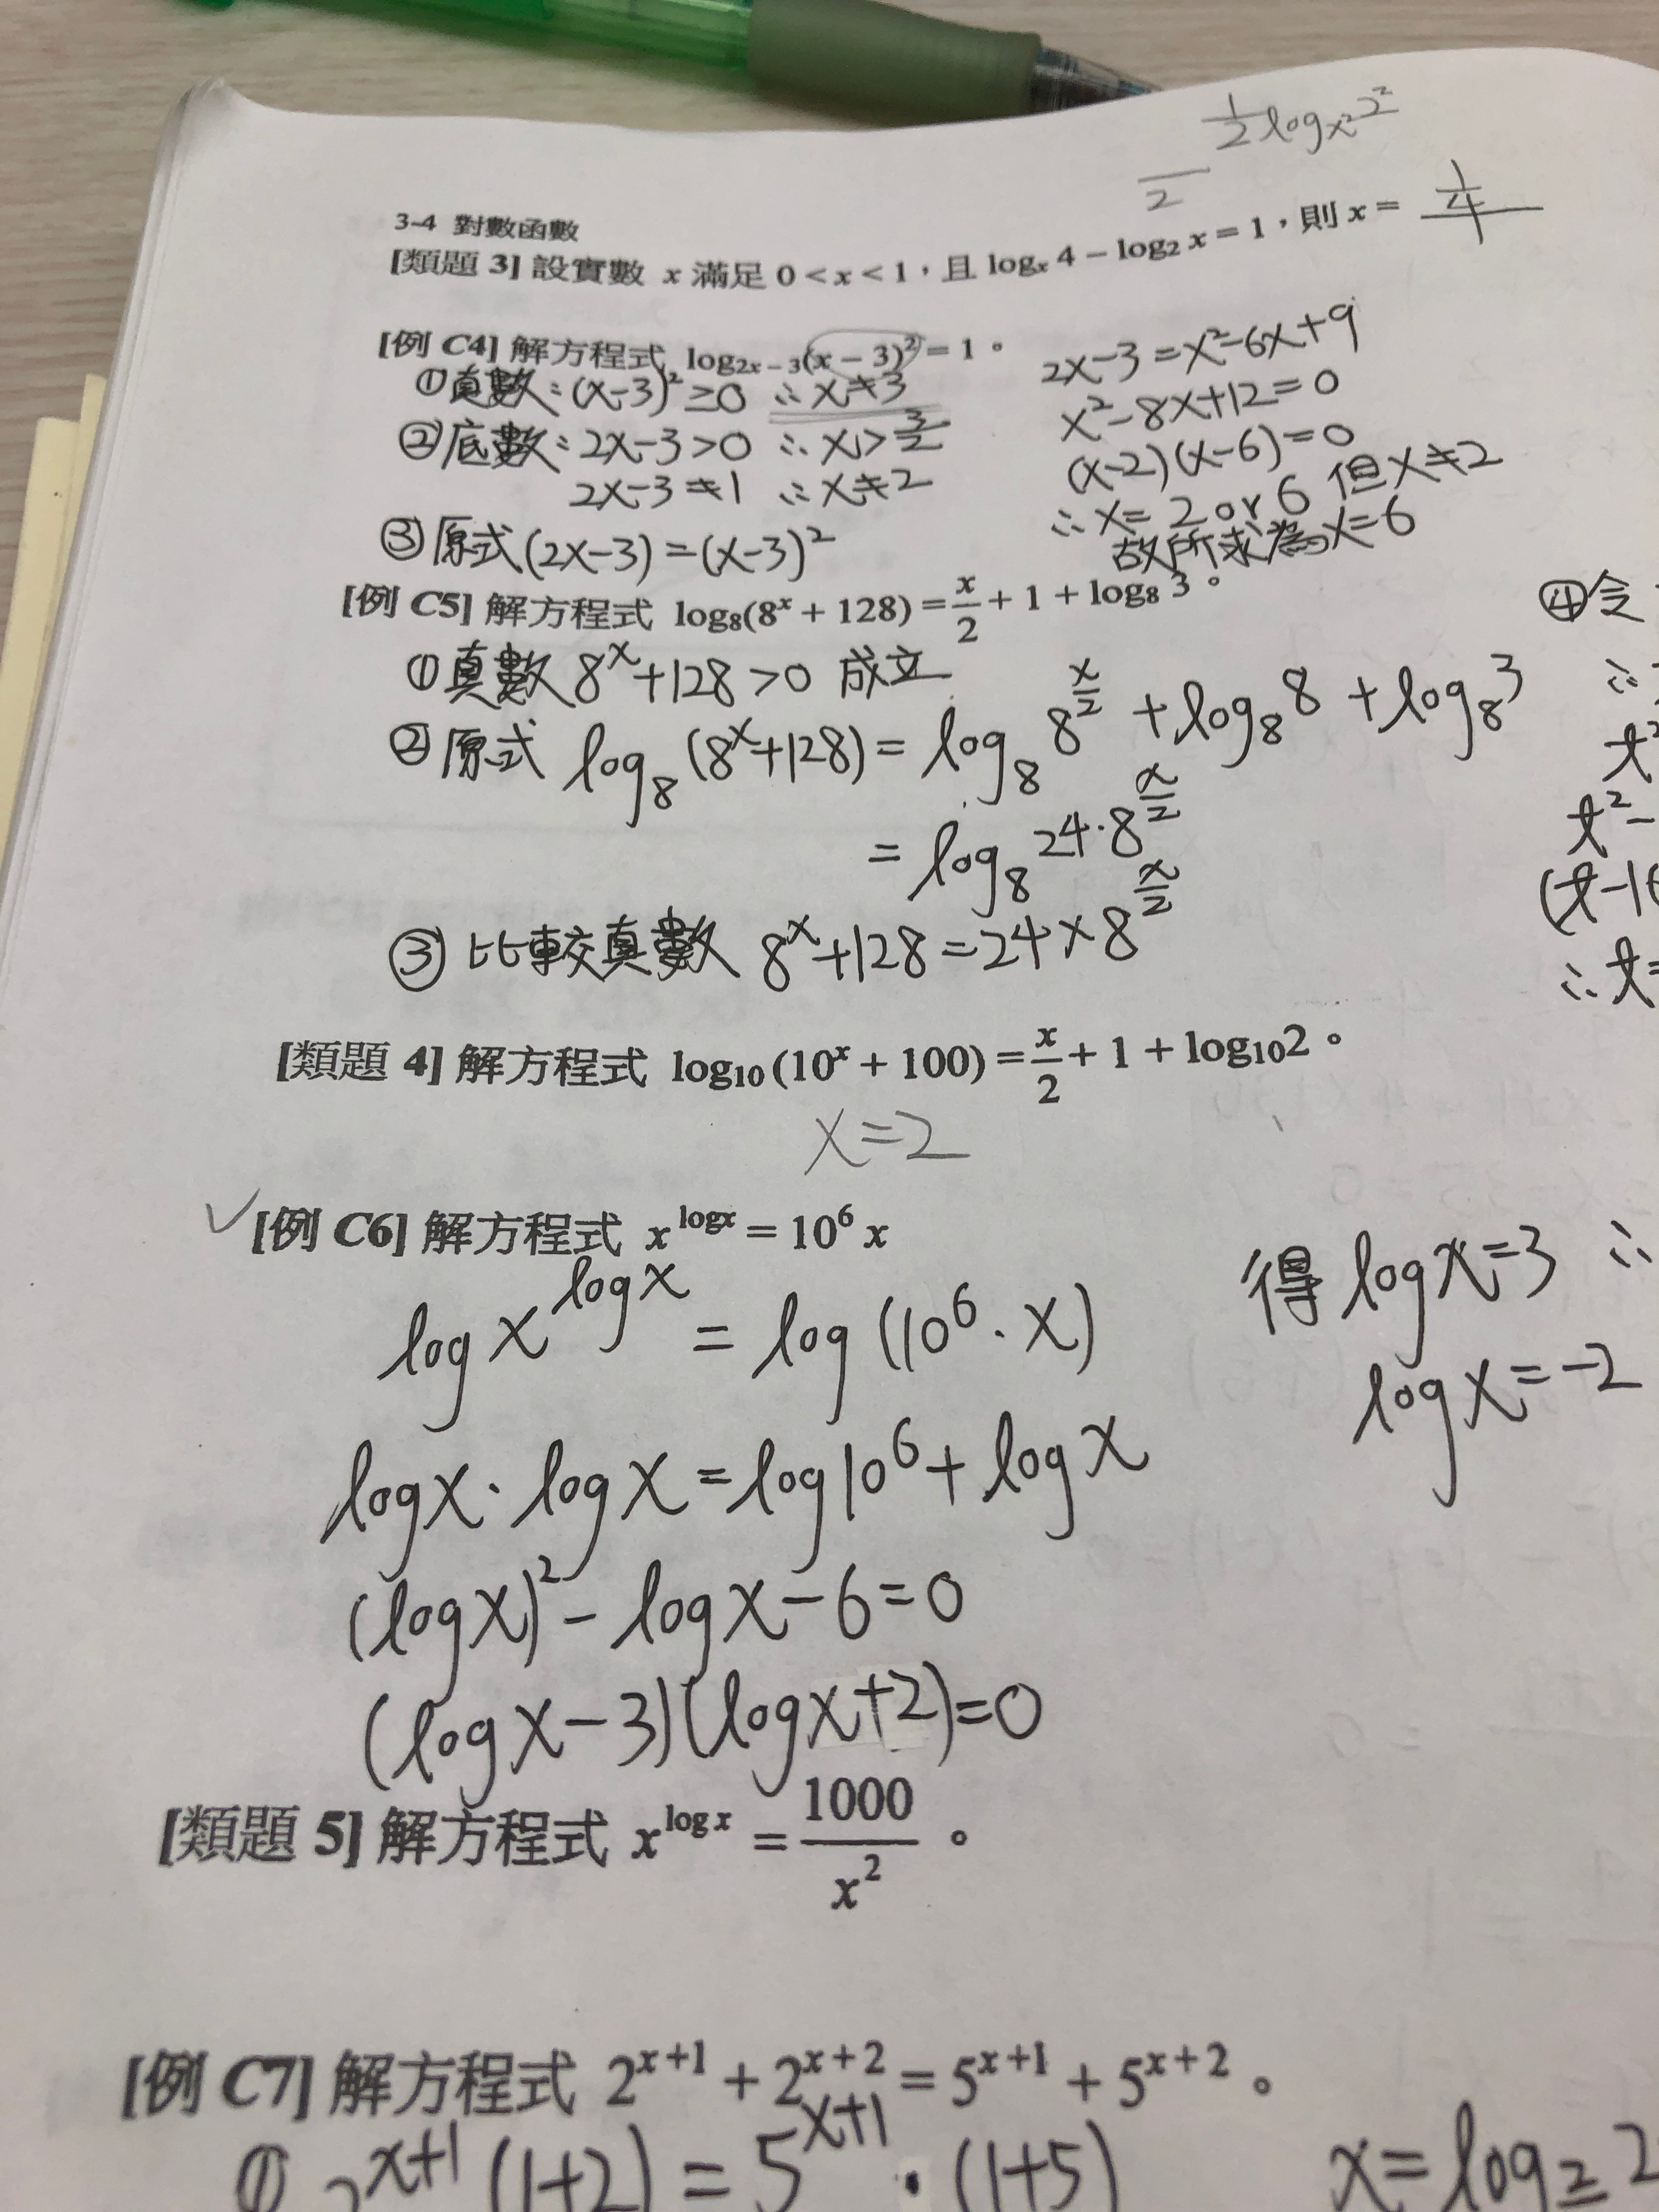 1/2 log x² 2²
2
3-4 對數函數
[類題 3] 設實數 x 滿足 0 < x < 1，且 logₓ 4 − log₂ x = 1，則 x = 1/4
[例 C4] 解方程式 log₂ₓ₋₃(x − 3)² = 1。
①真數：(x-3)² ≥0 ∴x≠3
②底數：2x-3>0 ∴x>3/2
2x-3≠1 ∴x≠2
③原式(2x-3)=(x-3)²
2x-3=x²-6x+9
x²-8x+12=0
(x-2)(x-6)=0
∴x=2 or 6 但x≠2
故所求為x=6
[例 C5] 解方程式 log₈(8ˣ + 128) = x/2 + 1 + log₈ 3。
①真數 8ˣ+128>0 成立
②原式 log₈(8ˣ+128)= log₈ 8^(x/2) + log₈ 8 + log₈ 3
= log₈ 24·8^(x/2)
③比較真數 8ˣ+128=24×8^(x/2)
④令
∴
t²
t²-
(t-16
∴t=
[類題 4] 解方程式 log₁₀(10ˣ + 100) = x/2 + 1 + log₁₀2。
x=2
✓[例 C6] 解方程式 x^(log x) = 10⁶ x
log x^(log x) = log (10⁶·x)
log x·log x = log 10⁶ + log x
(log x)² - log x - 6=0
(log x-3)(log x+2)=0
得 log x=3 ∴
log x=-2
[類題 5] 解方程式 x^(log x) = 1000/x²。
[例 C7] 解方程式 2^(x+1) + 2^(x+2) = 5^(x+1) + 5^(x+2)。
① 2^(x+1) (1+2) = 5^(x+1)·(1+5)
x=log